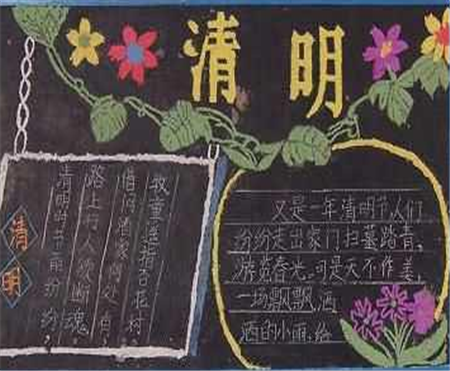 清明
清明
清明时节雨纷纷，
路上行人欲断魂
借问酒家何处有，
牧童遥指杏花村
又是一年清明节,人们
纷纷走出家门扫墓踏青、
游览春光。可是天不作美，
一场飘飘洒
洒的小雨、给